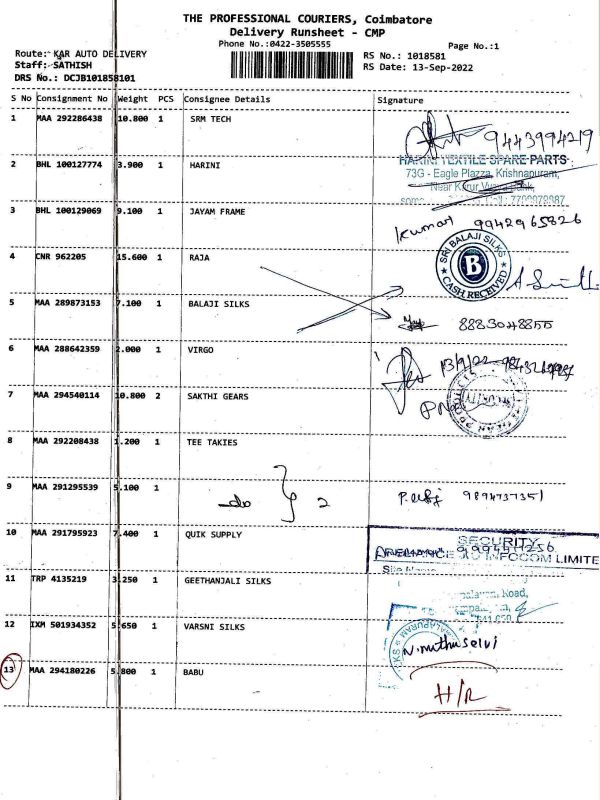 THE PROFESSIONAL COURIERS, Coimbatore
Delivery Runsheet - CMP
Phone No.:0422-3505555
Page No.:1
Route: KAR AUTO DELIVERY
Staff: SATHISH
DRS No.: DCJB101858101
RS No.: 1018581
RS Date: 13-Sep-2022
S No Consignment No Weight PCS Consignee Details Signature
1 MAA 292286438 10.800 1 SRM TECH
9443994219
2 BHL 100127774 3.900 1 HARINI
HARINI TEXTILE SPARE PARTS
73G - Eagle Plazza, Krishnapuram,
Near Karur Vysya Bank,
3 BHL 100129069 9.100 1 JAYAM FRAME
Kumar 9942965826
4 CNR 962205 15.600 1 RAJA
SRI BALAJI SILKS
B
CASH RECEIVED
5 MAA 289873153 7.100 1 BALAJI SILKS
6 MAA 288642359 2.000 1 VIRGO
13/9/22
7 MAA 294540114 10.800 2 SAKTHI GEARS
SECURITY
8 MAA 292208438 1.200 1 TEE TAKIES
9 MAA 291295539 5.100 1
do } 2
10 MAA 291795923 7.400 1 QUIK SUPPLY
SECURITY
INFOCOM LIMITE
11 TRP 4135219 3.250 1 GEETHANJALI SILKS
Road,
12 IXM 501934352 5.650 1 VARSNI SILKS
N.muthuselvi
13 MAA 294180226 5.800 1 BABU
H/R